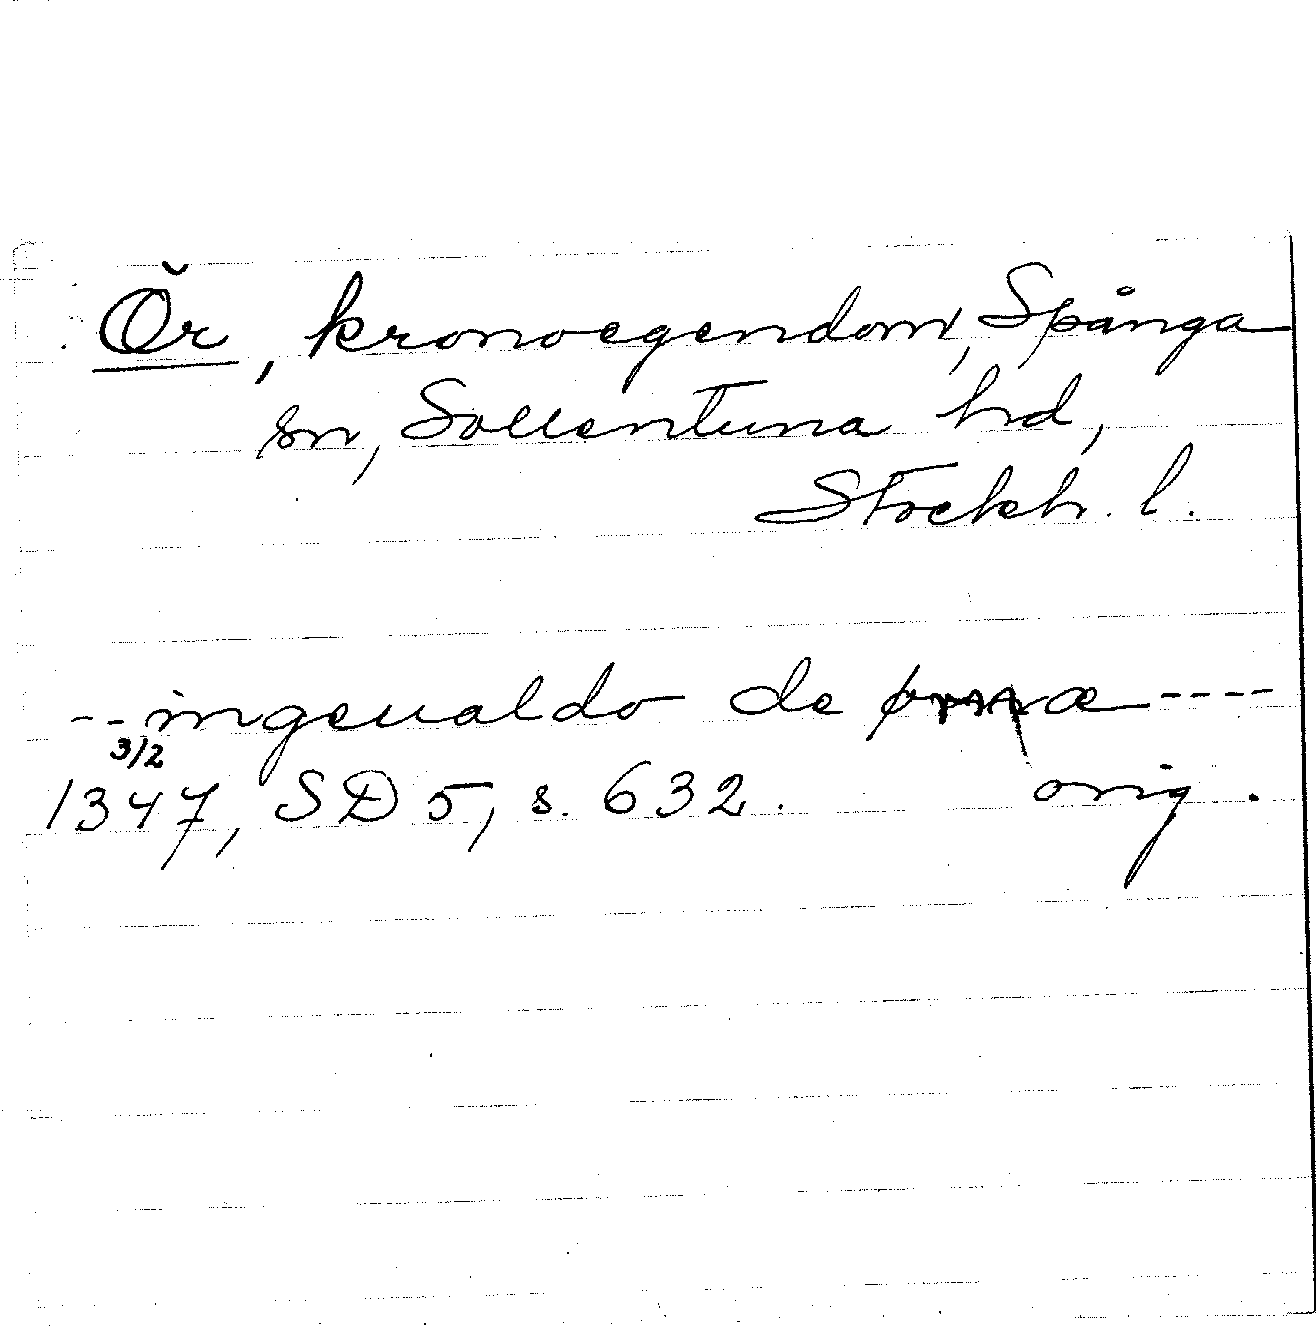 Ör, kronoegendom, Spånga
sn, Sollentuna hd,
Stockh. l.
--ingeualdo de ----
3/2
1347, SD 5, s. 632. orig.